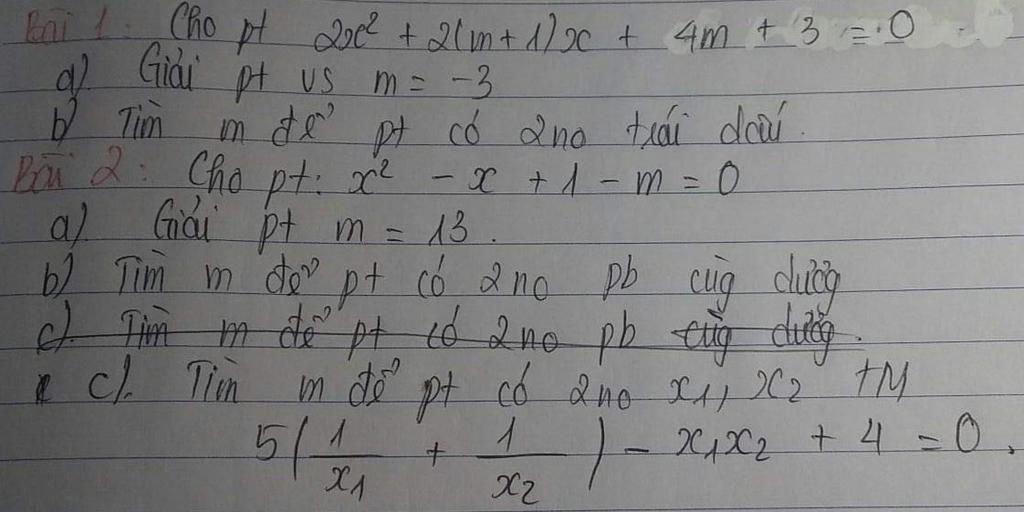 Bài 1: Cho pt 2x² + 2(m+1)x + 4m + 3 = 0
a) Giải pt vs m = -3
b) Tìm m để pt có 2 no trái dấu.
Bài 2: Cho pt: x² - x + 1 - m = 0
a) Giải pt m = 13.
b) Tìm m để pt có 2 no pb cùg dươg
c) Tìm m để pt có 2 no pb cùg dươg.
c). Tìm m để pt có 2 no x₁, x₂ TM
5(1/x₁ + 1/x₂) - x₁x₂ + 4 = 0.